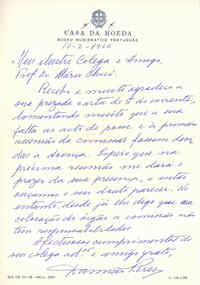 CASA DA MOEDA
MUSEU NUMISMÁTICO PORTUGUÊS
Meu Ilustre Colega e Amigo
Prof. de
Recebi e muito agradeço a
sua prezada carta de 5 do corrente,
lamentando muito que a sua
falta ao acto de posse e à primeira
reunião da comissão fossem
a doença. Espero que na
próxima reunião me dará o
prazer da sua presença, e então
ouvirmos o seu douto parecer. No
entanto, desde já lhe digo que na
colocação do órgão a comissão não
tem responsabilidades.
cumprimentos do
seu colega e amigo grato,